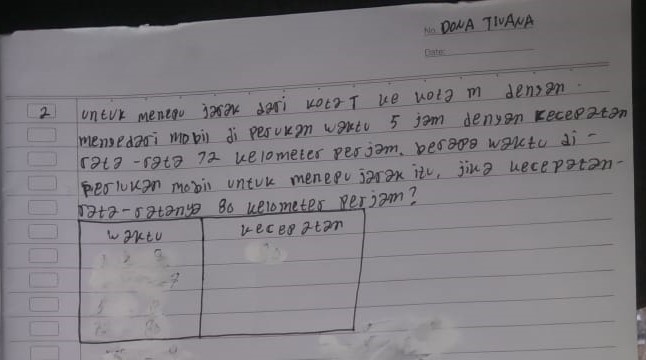 No. DONA TIVANA
Date:
2 untuk menepu jarak dari kota T ke kota m dengan
mengedari mobil di perukan waktu 5 jam dengan kecepatan
rata-rata 72 kelometer per jam. berapa waktu di-
perlukan mobil untuk menepu jarak itu, jika kecepatan-
rata-ratanya 80 kelometer per jam?
waktu kecepatan